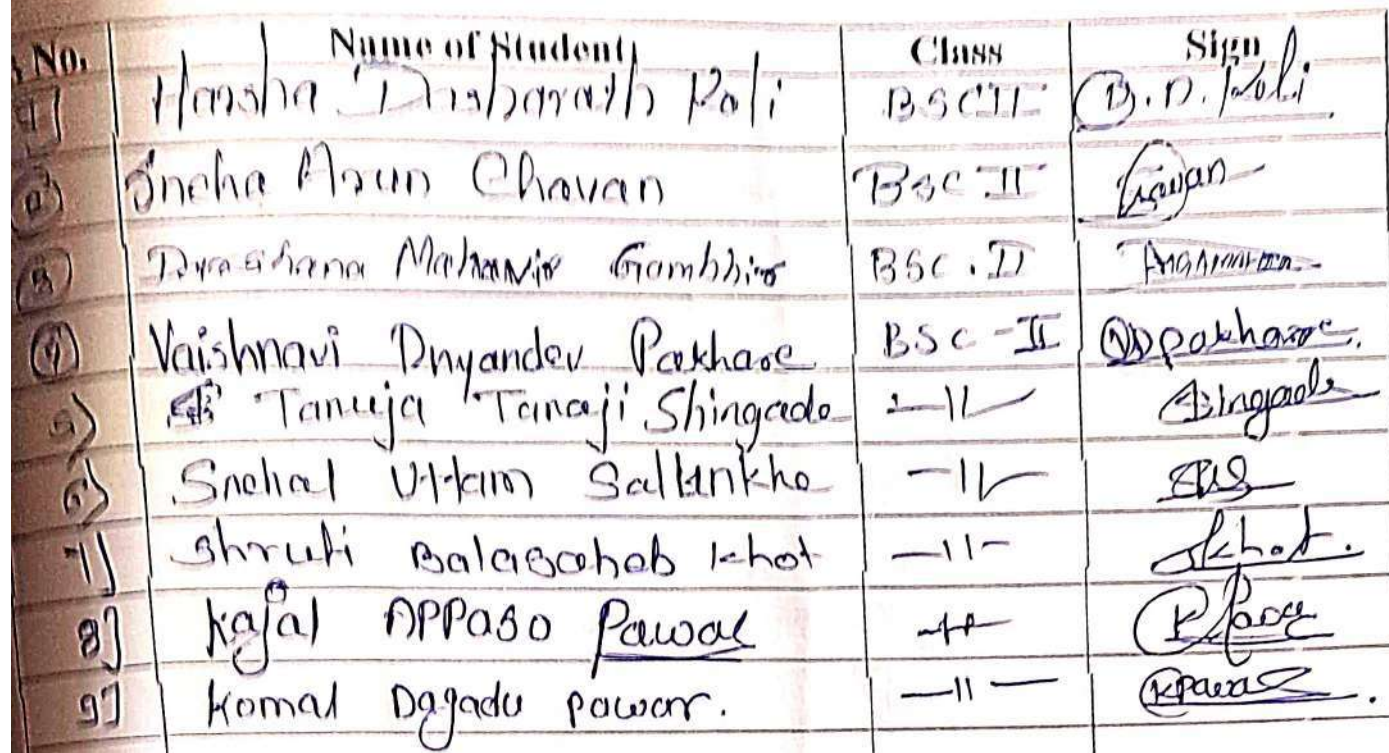 No. Name of Student Class Sign
1] Harsha Dasharath Koli BSCII B.D. Koli
2) Sneha Arun Chavan BSC II
3) Mahavir Gambhir BSC.II
4) Vaishnavi Dnyandev Pakhare BSC-II Pakhare
5) Tanuja Tanaji Shingade —11— Shingade
6) Snehal Uttam Sallunkhe —11—
7] Shruti Balasaheb Khot —11— Skhot.
8] Kajal APPASO Pawar —11—
9] Komal Dagadu Pawar. —11— KPawar.